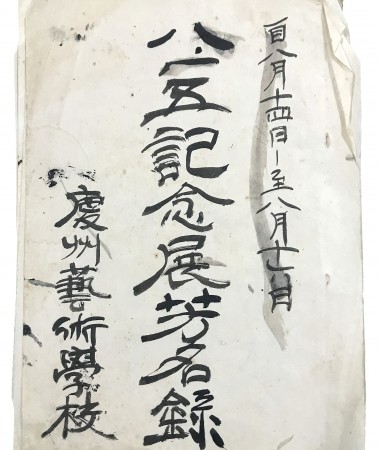 自八月十四日-至八月十七日
八一五記念展芳名錄
慶州藝術學校